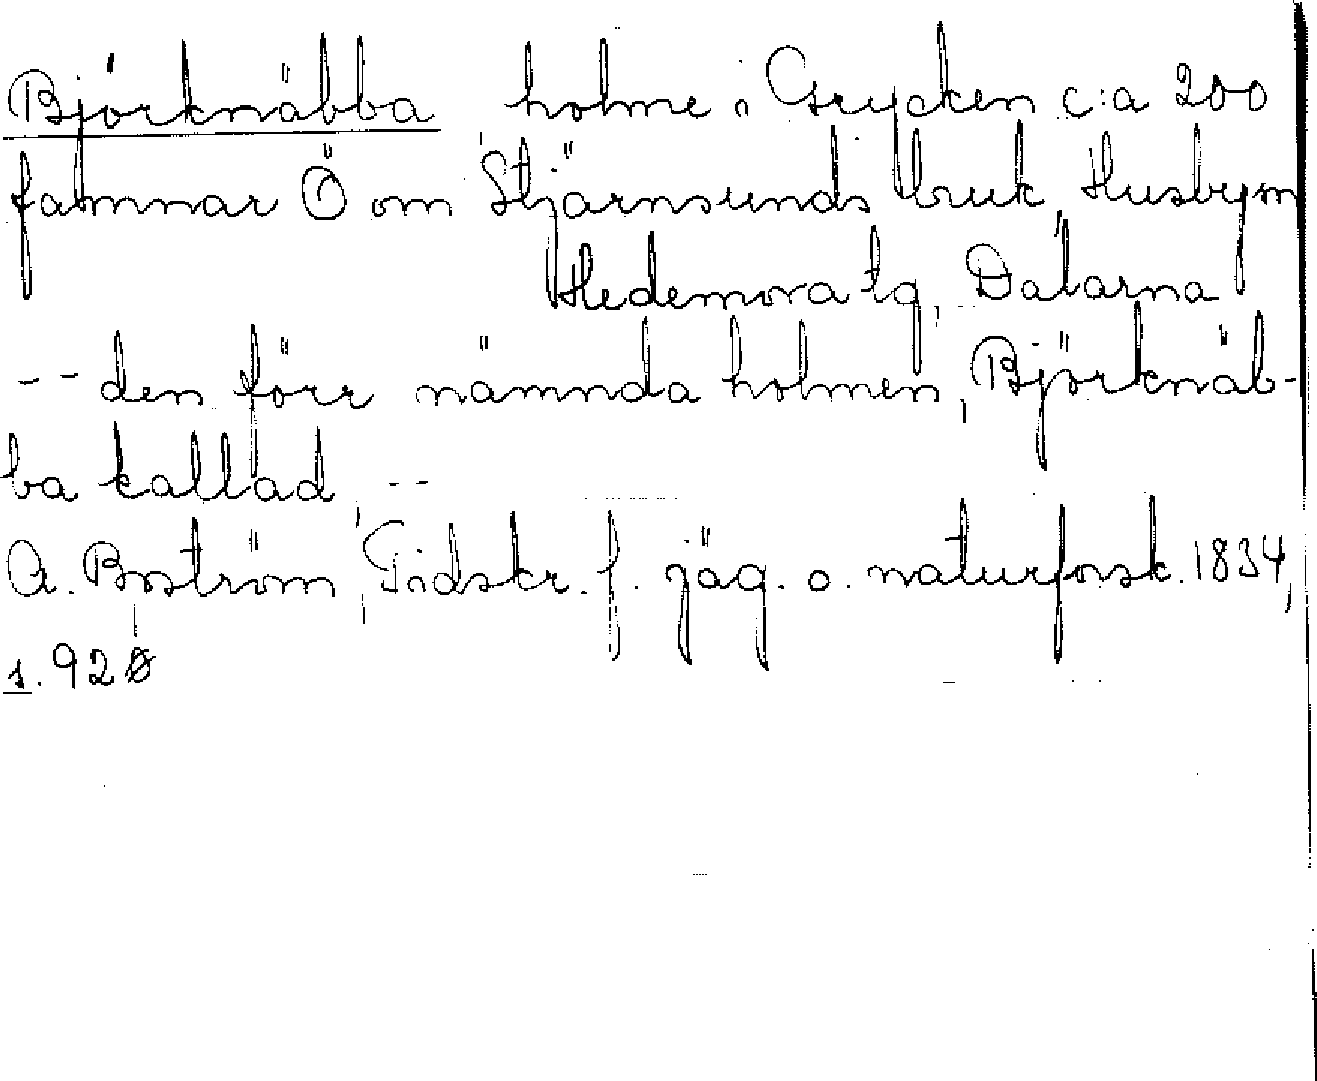 Björknäbba holme i Grycken c:a 200
famnar Ö om Stjärnsunds bruk, Husbysn
Hedemora tg, Dalarna
-- den förr nämnda holmen, Björknäb-
ba kallad --
A. Boström, Tidskr. f. jäg. o. naturforsk. 1834,
s. 928